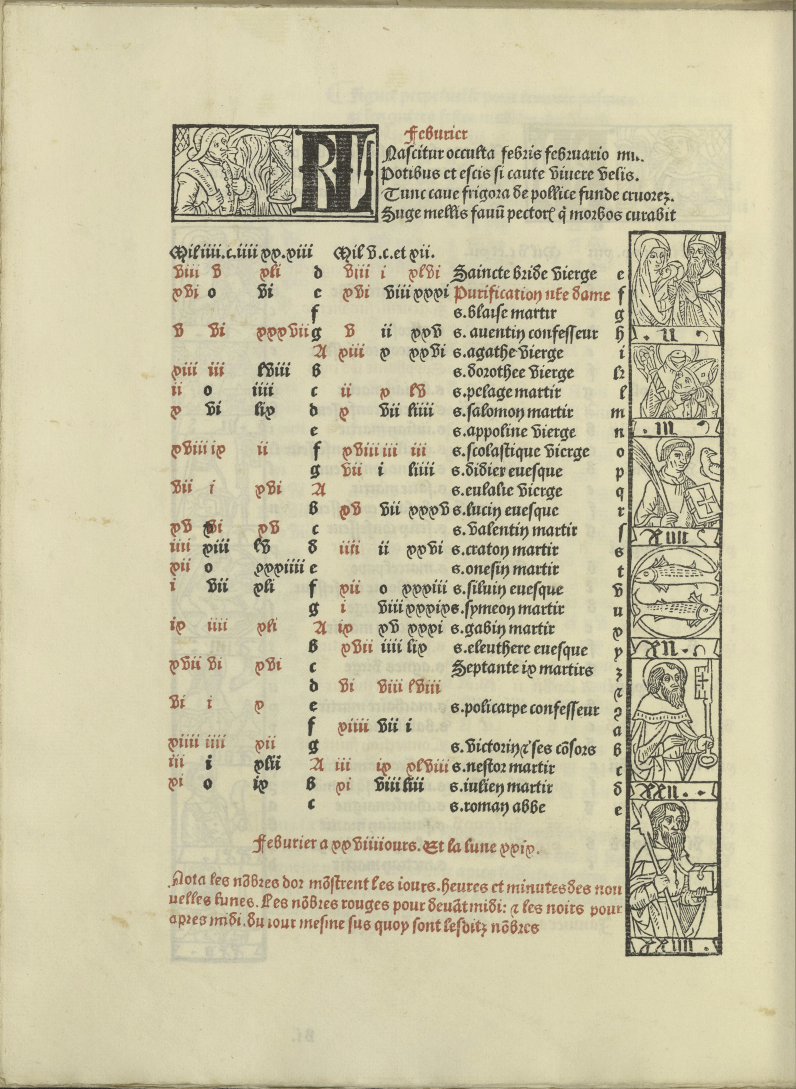 KL
Feburier
Nascitur occulta febris februario mi.
Potibus et escis si caute viuere velis.
Tunc caue frigora de pollice funde cruorez.
Suge mellis fauū pectorꝭ q̄ morbos curabit
Mil iiii.c.iiii xx.xiii Mil v.c.et xii.
viii v xli d viii i xlvi Saincte bride vierge e
xvi o vi e xvi viii xxxi Purification nr̄e dame f
f s.blaise martir g
v vi xxxvii g v ii xxv s.auentin confesseur h
A xiii x xxvi s.agathe vierge i
xiii iii lviii b s.dorothee vierge k
ii o iiii c ii x lv s.pelage martir l
x vi lix d x vii liiii s.salomon martir m
e s.appoline vierge n
xviii ix ii f xviii iii iii s.scolastique vierge o
g vii i liiii s.didier euesque p
vii i xvi A s.eulalie vierge q
b xv vii xxxv s.lucin euesque r
xv vi xv c s.valentin martir ſ
iiii xiii lv d iiii ii xxvi s.craton martir s
xii o xxxiiii e s.onesin martir t
i vii xli f xii o xxxiii s.siluin euesque v
g i viii xxxix s.symeon martir u
ix iiii xli A ix xv xxxi s.gabin martir x
b xvii iiii lix s.eleuthere euesque y
xvii vi xvi c Septante ix martirs z
d vi viii lviii ⁊
vi i x e s.policarpe confesseur ꝯ
f xiiii vii i a
xiiii iiii xii g s.victorin ⁊ ses cōsors b
iii i xlii A iii ix xlviii s.nestor martir c
xi o ix b xi viii liii s.iulien martir d
c s.roman abbe e
.II.
.III.
XIIII
XII.
XXII.
XXIIII.
Feburier a xxviii iours. Et la lune xxix.
Nota les nōbres dor mōstrent les iours.heures et minutes des nou
uelles lunes. Les nōbres rouges pour deuāt midi: ⁊ les noirs pour
apres midi.du iour mesme sus quoy sont lesditz nōbres